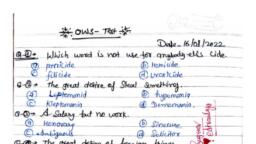 OWS - Test
Date - 16/08/2022
Q-① Which word is not use for anybody ell's Cide.
ⓐ parricide ⓑ homicide
ⓒ filicide ⓓ Uxoricide
Q-② The great desire of Steal Something.
ⓐ Leptomania
ⓒ Kleptomania ⓓ Demomania.
Q-③ A Salary but no work.
ⓐ Honorary ⓑ Sinecure
ⓒ Ambiguous ⓓ Solicitor
The great desire of